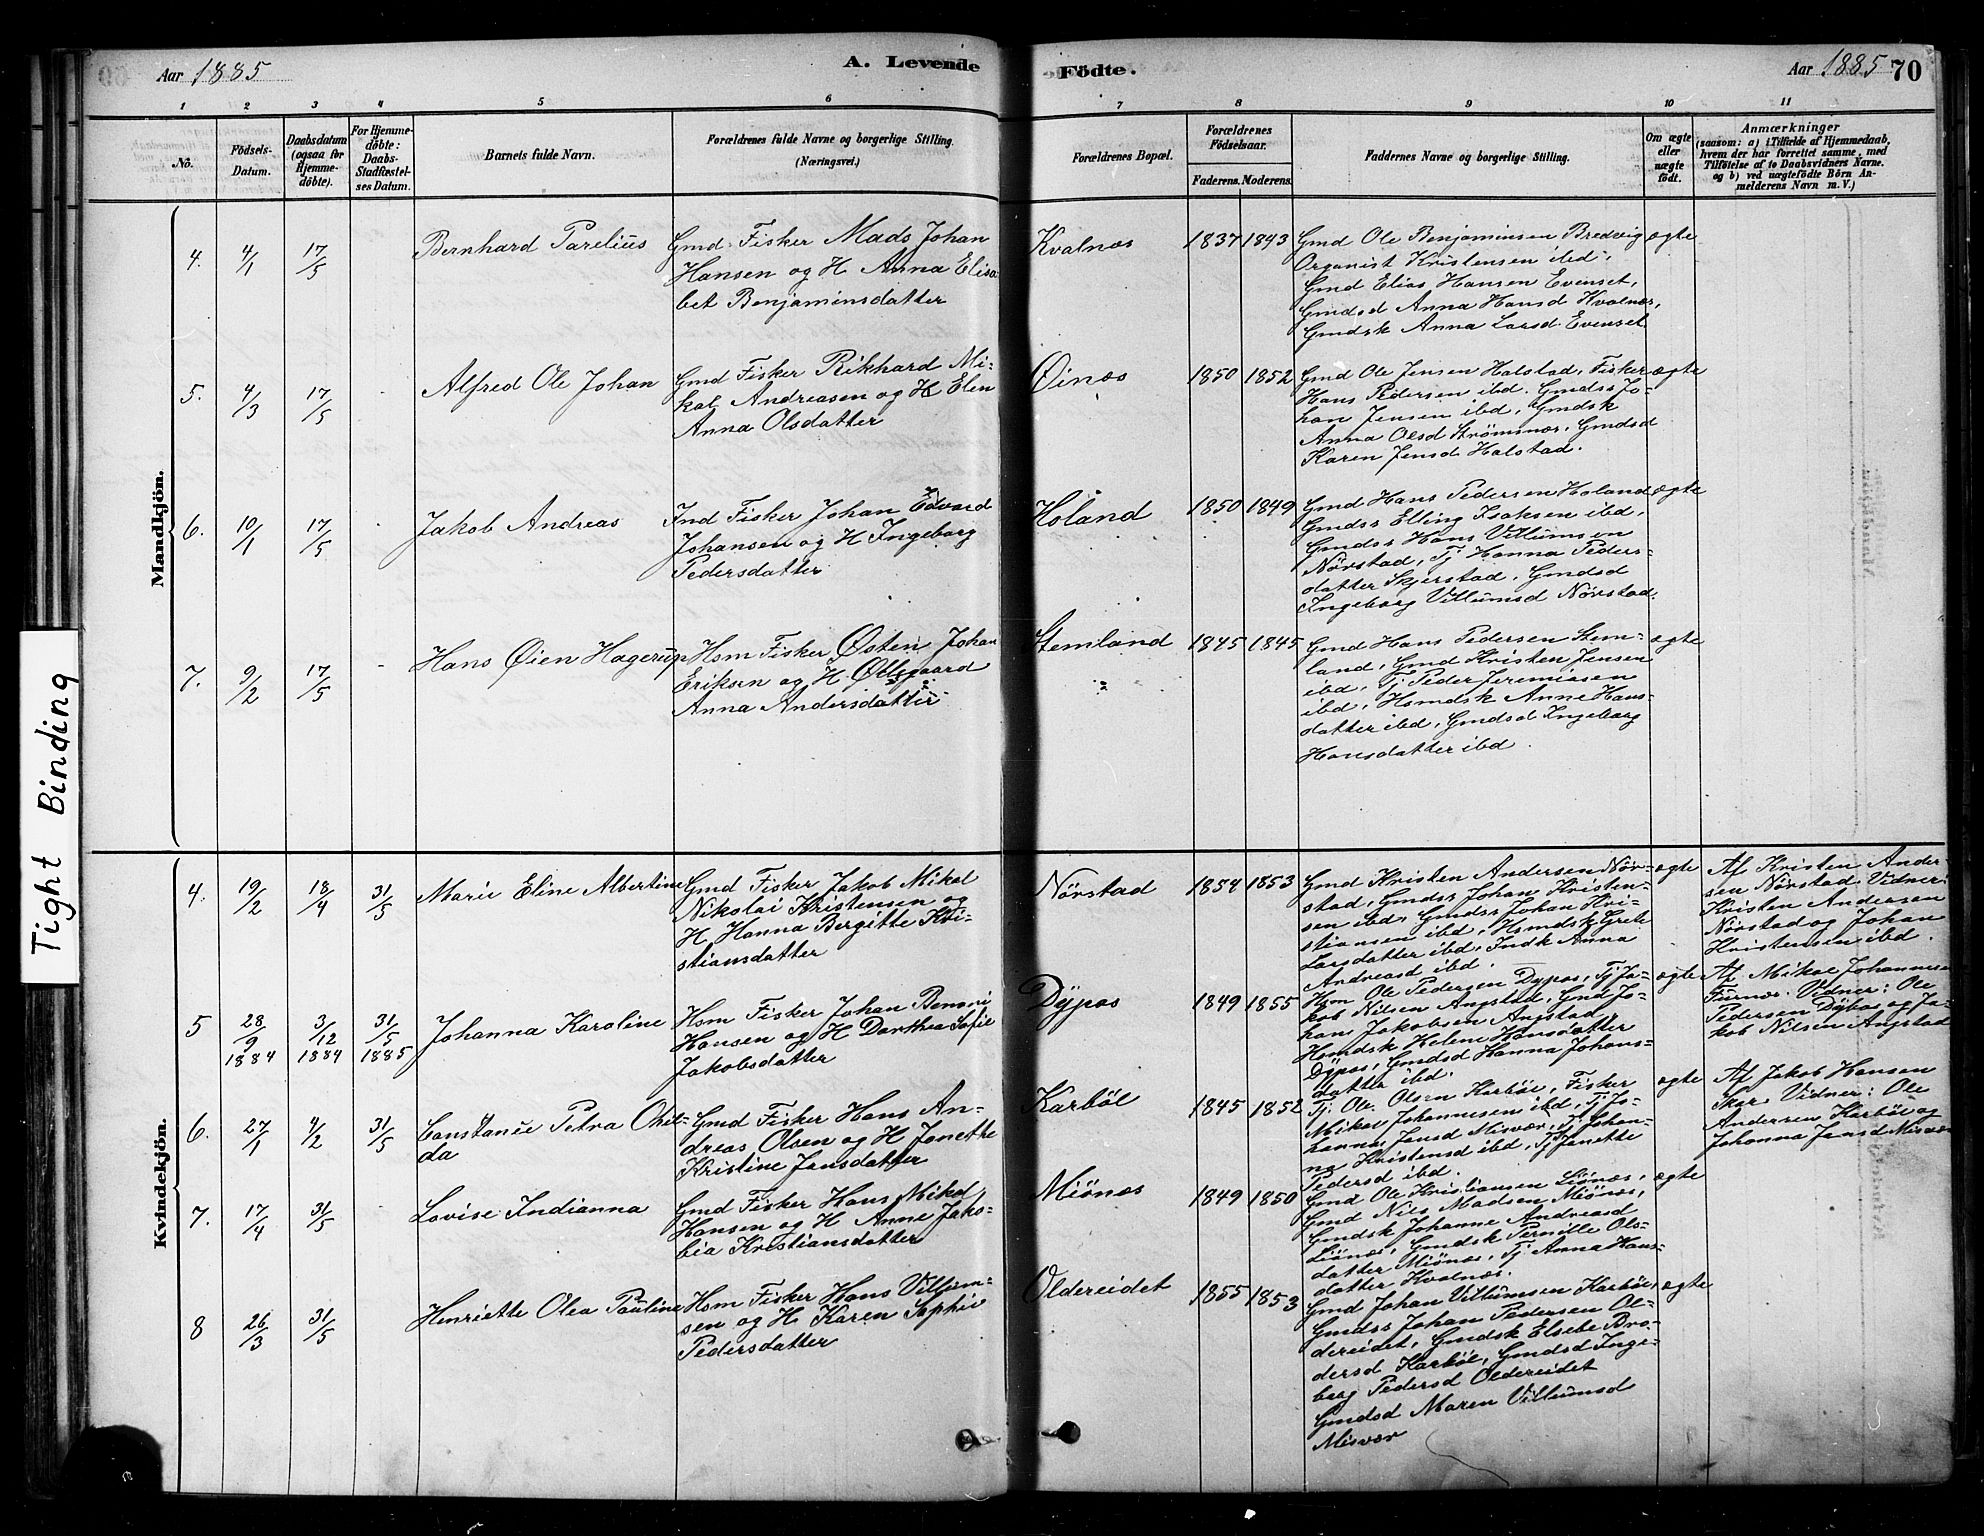 Aar 1885
A. Levende
Födte.
Aar 1885 70
1 2 3 4 5 6 7 8 9 10 11
No.
Födsels-
Datum.
Daabsdatum
(ogsaa for
Hjemme-
döbte).
For Hjemme-
döbte:
Daabs-
Stadfæstel-
ses Datum.
Barnets fulde Navn.
Forældrenes fulde Navne og borgerlige Stilling.
(Næringsvei.)
Forældrenes Bopæl.
Forældrenes
Födselsaar.
Faderens. Moderens.
Faddernes Navne og borgerlige Stilling.
Om ægte
eller
uægte
födt.
Anmærkninger
(saasom: a) i Tilfælde af Hjemmedaab,
hvem der har forrettet samme, med
Tilföielse af to Daabsvidners Navne.
og b) ved uægtefödte Börn An-
melderens Navn m. V.)
Tight Binding
Mandkjön.
4. 4/1 17/5
Bernhard Parelius
Gmd. Fisker Mads Johan
Hansen og H. Anna Elisa-
bet Benjaminsdatter
Kvalnæs
1837 1843
Gmd Ole Benjaminsen Bredvig
Organist Kristensen ibd,
Gmd Elias Hansen Evenset,
Gmdsd Anna Hansd Kvalnæs,
Gmdsk Anna Larsd. Evenset
ægte
5. 4/3 17/5
Alfred Ole Johan
Gmd Fisker Rikhard Mi-
kal Andreasen og H. Elen
Anna Olsdatter
Öinæs
1850 1852
Gmd Ole Jensen Halstad, Fisker
Hans Pedersen ibd. Gmdss Jo-
han Jensen ibd, Gmdsk
Anna Olsd Strömsnæs, Gmdsd
Karen Jensd. Halstad.
ægte
6. 10/1 17/5
Jakob Andreas
Ind Fisker Johan Edvard
Johansen og H Ingeborg
Pedersdatter
Håland
1850 1849
Gmd Hans Pedersen Håland
Gmdss Elling Isaksen ibd,
Gmdss Hans Villumsen
Nörstad, Tj Hanna Peders-
datter Skjerstad, Gmdsd
Ingeborg Villumsd Nörstad.
ægte
7. 9/2 17/5
Hans Øien Hagerup
Hsm Fisker Østen Johan
Eriksen og H Ollegaard
Anna Andersdatter
Stemland
1845 1845
Gmd Hans Pedersen Stem-
land, Gmd Kristen Jensen
ibd, Tj Peder Jeremiasen
ibd, Hsmdsk Anne Hans-
datter ibd, Gmdsd Ingeborg
Hansdatter ibd.
ægte
Kvindekjön.
4. 19/2 18/4 31/5
Marie Eline Albertine
Gmd Fisker Jakob Mikal
Nikolai Kristensen og
H. Hanna Bergitte Kri-
stiansdatter
Nörstad
1854 1853
Gmd Kristen Andersen Nör-
stad, Gmdss Johan Kristen-
sen ibd, Gmdss Johan Kri-
stiansen ibd, Hsmdsk Grete
Larsdatter ibd, Indk Anna
Andreasd ibd.
ægte
Af Kristen Ander-
sen Nörstad. Vidner:
Kristen Andersen
Nörstad og Johan
Kristensen ibd.
5 28/9 1884 3/12 1884 31/5 1885
Johanna Karoline
Hsm Fisker Johan Benoni
Hansen og H Dorthea Sofie
Jakobsdatter
Dypos
1849 1855
Hsm Ole Pedersen Dypos, Tj Ja-
kob Nilsen Angstad, Gmd Jo-
han Jakobsen Angstad
Hsmdsk Helene Hansdatter
Dypos, Gmdsd Hanna Johans-
datter ibd.
ægte
Af Mikal Johannesen
Furnæs. Vidner: Ole
Pedersen Dybos og Ja-
kob Nilsen Angstad
6. 27/1 4/2 31/5
Constanse Petra Ohil-
da
Gmd Fisker Hans An-
dreas Olsen og H Janette
Kristine Jansdatter
Karböl
1845 1852
Tj. Ole Olsen Karböl, Fisker
Mikal Johannesen ibd, Tj Jo-
hannes Jensd Misvær, Tj Johan-
na Kristensd ibd, Tj Janette
Pedersd ibd.
ægte
Af Jakob Hansen
Skar Vidner: Ole
Andersen Karböl og
Johanna Jansd Misvær
7. 17/4 31/5
Lovise Indianna
Gmd Fisker Hans Mikal
Hansen og H Anne Jako-
bia Kristiansdatter
Miönæs
1849 1850
Gmd Ole Kristiansen Liönæs,
Gmd Nils Madsen Miönæs,
Gmdsk Johanne Andreasd
Liönæs, Gmdsk Pernille Ols-
datter Miönæs, Tj Anna Hans-
datter Kvalnæs.
ægte
8 26/3 31/5
Henriette Olea Pauline
Hsm Fisker Hans Viljem-
sen og H. Karen Sophie
Pedersdatter
Oldereidet
1855 1853
Gmd Johan Villumsen Karböl,
Gmdss Johan Pedersen Ol-
dereidet, Gmdsk Elsebe Bro-
dersd Karböl, Gmdsd Inge-
borg Pedersd Oldereidet
Gmdsd Maren Villumsd
Misvær
ægte